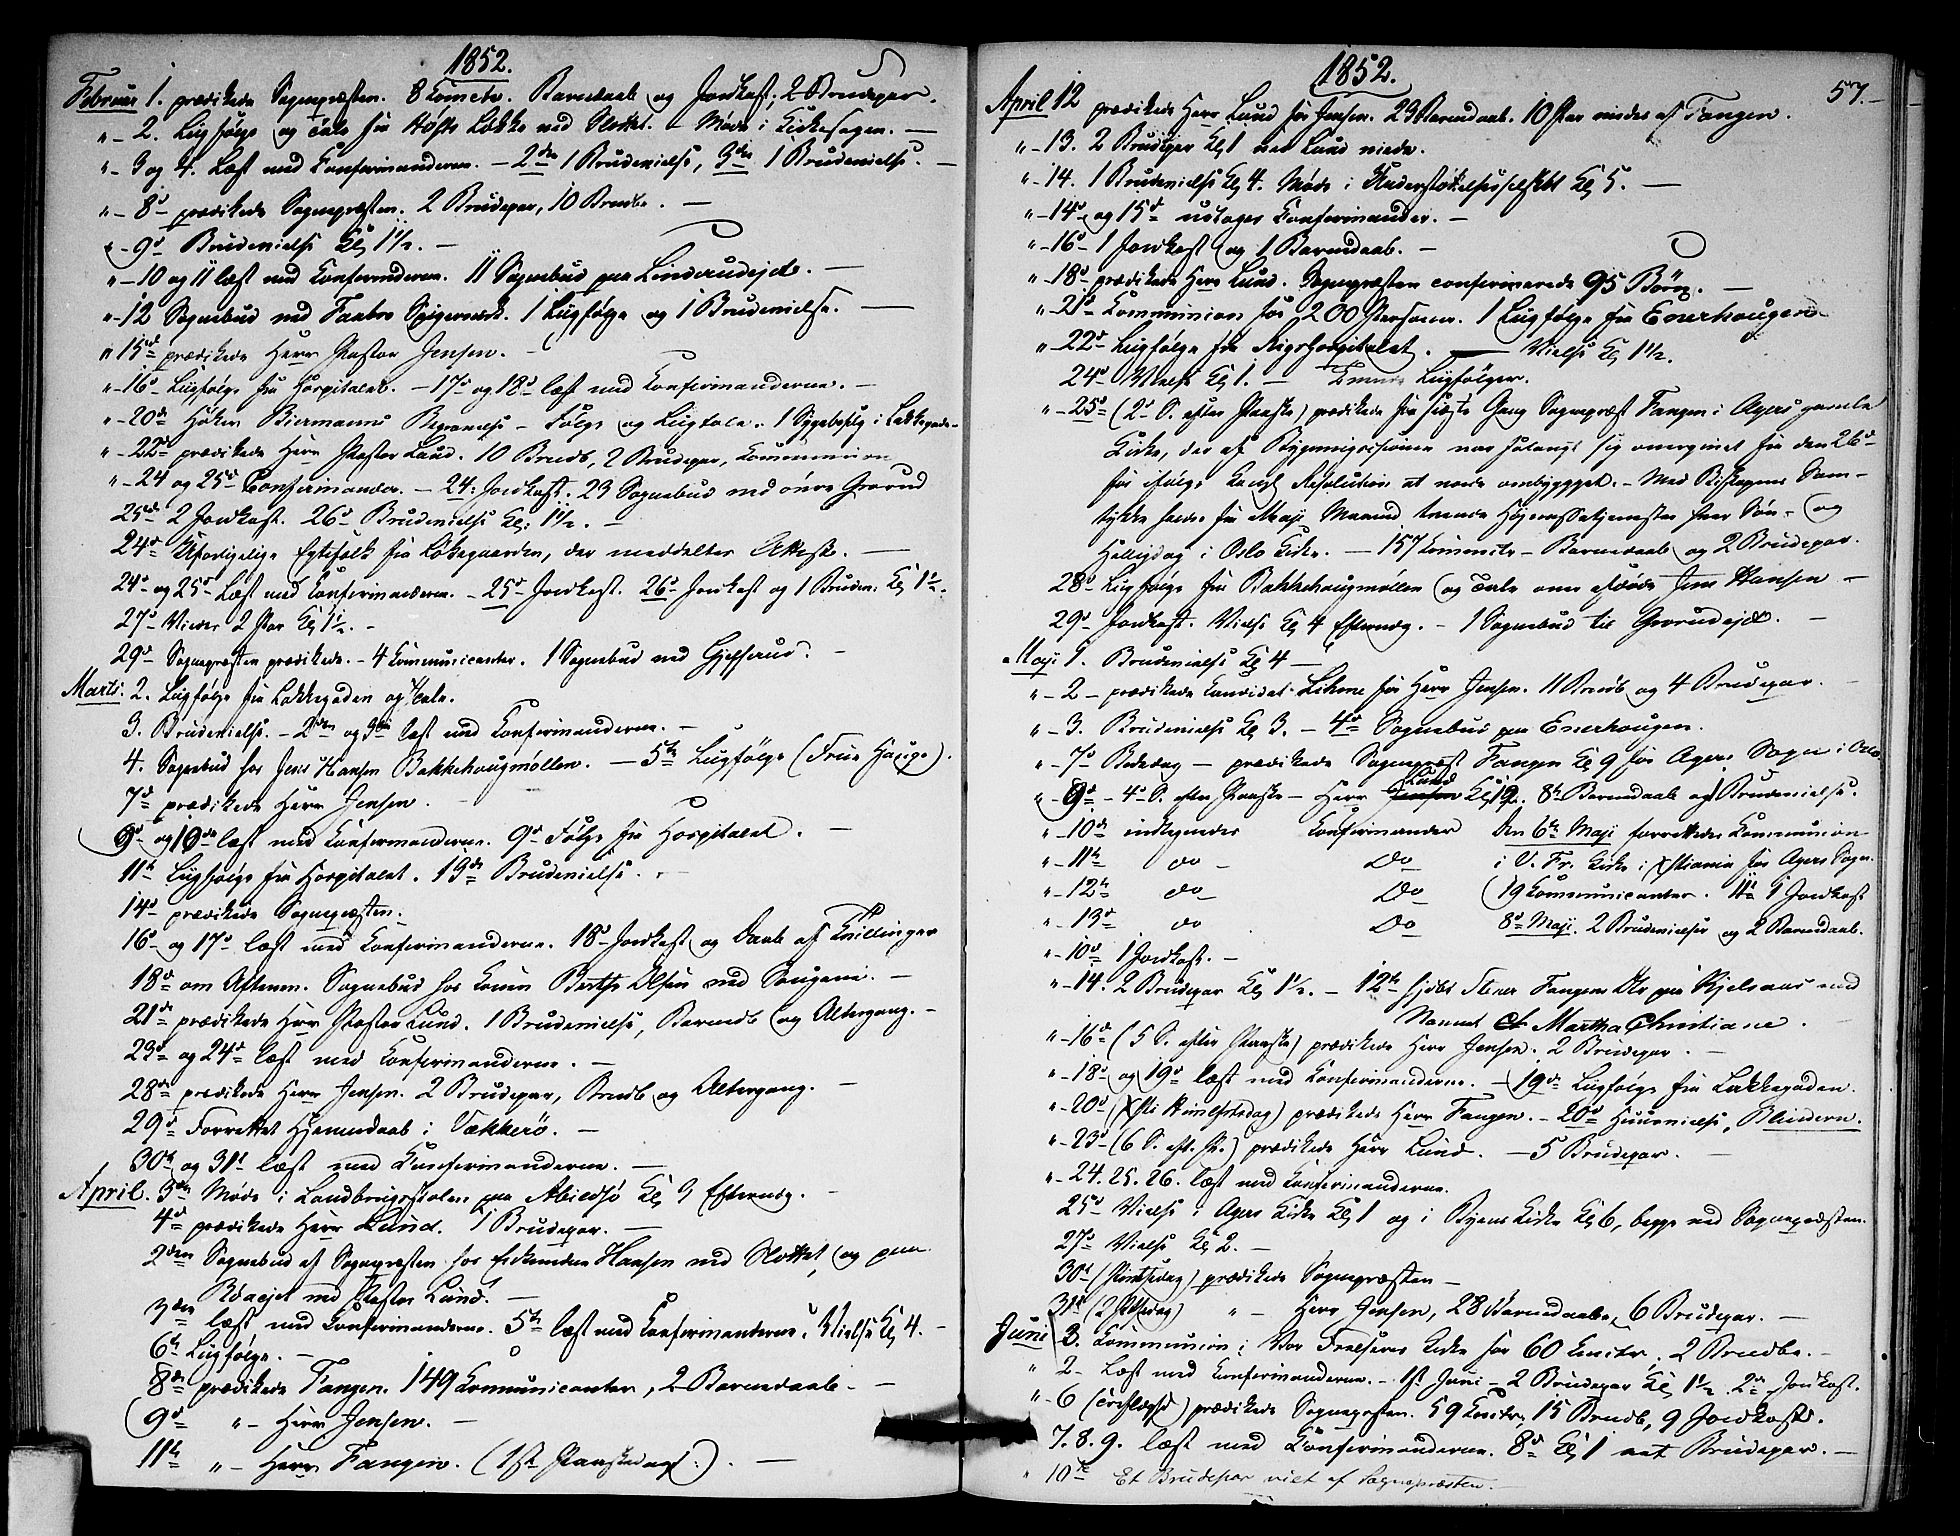 1852.
Februar 1. prædikede Sognepræsten. 8 Komctr. Barnedaab og Jordkast; 2 Brudepar.
"- 2. Liigfølge og Tale fra Løkke ved Slottet. - Møde i Kirkesagen. -
"- 3 og 4. Læst med Konfirmanderne. - 2den 1 Brudevielse, 3die 1 Brudevielse. -
"- 8de prædikede Sognepræsten. 2 Brudepar, 10 Brndb. -
"- 9d Brudevielse Kl 1½. -
"- 10 og 11 læst med Konfirmderne. 11 Sognebud paa Linderudejet. -
"- 12 Sognebud ved Faabro Spigerværk. 1 Liigfølge og 1 Brudevielse. -
" 15de prædikede Herr Pastor Jensen. -
"- 16d Liigfølge fra Hospitalet. - 17d og 18d læst med Konfirmanderne. -
"- 20de Høker Biermanns Begravelse - Følge og Liigtale. 1 Sygebesøg i Lakkegade-
"- 22de prædikede Herr Pastor Lund. 10 Brndb, 2 Brudepar, Kommunion
"- 24 og 25de Konfirmander. - 24: Jordkast. 23 Sognebud ved øvre Grorud
25de 2 Jordkast. 26d Brudevielse Kl: 1½. -
24d Uforligelige Egtefolk fra Løkegaarden, der meddeltes Attest. -
24d og 25d Læst med Konfirmanderne. - 25d Jordkast. 26d Jordkast og 1 Bruden. Kl 1½.
27d Viedes 2 Par Kl 1½. -
29d Sognepræsten prædikede. - 4 Kommunicanter. 1 Sognebud ved Gjelserud. -
Marts. 2. Liigfølge fra Lakkegaden og Tale.
3. Brudevielse. - 2den og 3die læst med Konfirmanderne. -
4. Sognebud hos Jens Hansen Bakkehaugmøllen. - 5te Liigfølge (Frue Hauge).
7d prædikede Herr Jensen. -
9d og 10de læst med Konfirmanderne. 9d Følge fra Hospitalet. -
11te Liigfølge fra Hospitalet. 13de Brudevielse. -
14d prædikede Sognepræsten.
16d og 17d læst med Konfirmanderne. 18d Jordkast og Daab af Tvillinger
18d om Aftenen. Sognebud hos Konen Berthe Olsen ved Sougene. -
21de prædikede Herr Pastor Lund. 1 Brudevielse, Barnedb og Altergang. -
23d og 24d læst med Konfirmanderne. -
28de prædikede Herr Jensen. 2 Brudepar, Brndb og Altergang. -
29d Forrettet Hjemmedaab i Vækkerø. -
30te og 31t læst med Konfirmanderne. -
April. 3die Møde i Landbrugsskolen paa Abildsø Kl 3 Eftermdg. -
4d prædikede Herr Lund. 1 Brudepar. -
2den Sognebud af Sognepræsten hos Hansen ved Slottet, og paa
ved Pastor Lund. -
3den læst med Konfirmanderne. 5te læst med Konfirmanderne. Vielse Kl 4. -
6te Liigfølge. -
8de prædikede Fangen. 149 Kommunicanter, 2 Barnedaab. -
9d "- Herr Jensen. -
11te "- Herr Fangen. (1st Paaskedag.). -
1852.
57.-
April 12 prædikede Herr Lund for Jensen. 23 Barndaab. 10 Par viedes af Fangen.
"- 13. 2 Brudepar Kl 1 Lund viede.
"- 14. 1 Brudevielse Kl 4. Møde i Understøttelsesselskbt Kl 5. -
"- 14d og 15d udtoges Konfirmander. -
"- 16d 1 Jordkast og 1 Barndaab. -
"- 18d prædikede Herr Lund. Sognepræsten confirmerede 95 Børn. -
"- 21d Kommunion for 200 Personer. 1 Liigfølge fra Enerhougen -
"- 22d Liigfølge fra Rigshospitalet. - Vielse Kl 1½.
24d Vielse Kl 1. - Liigfølger.
"- 25d (2d S. efter Paaske) prædikede for sidste Gang Sognepræst Fangen i Agers gamle
Kirke, der af Bygningscommissionen var forlangt sig overgivet fra den 26d
for ifølge Kongl. Resolution at vorde ombygget. - Med Biskopens Sam-
tykke holdes fra Maji Maaned Høimessetjeneste hver Søn- og
Helligdag i Oslo Kirke. - 157 Kommctr - Barnedaab og 2 Brudepar.
28d Liigfølge fra Bakkehaugmøllen og Tale over afdøde Jens Hansen -
29d Jordkast. Vielse Kl 4 Eftermdg. - 1 Sognebud til Grorudejet. -
Maji 1. Brudevielse Kl 4 -
"- 2 - prædikede Kandidat Lihme for Herr Jensen. 11 Brndb og 4 Brudepar. -
"- 3. Brudevielse Kl 3. - 4d Sognebud paa Enerhougen.
"- 7d Bededag - prædikede Sognepræst Fangen Kl 9 for Agers Sogn i Oslo
"- 9d - 4d S. efter Paaske - Herr Lund Kl 12. 8te Barnedaab og 1 Brudevielse.
"- 10de indtegnedes Konfirmander den 6te Maji forrettedes Kommunion
"- 11te do - Do i V. Fr. Kirke i Xstiania for Agers Sogn.
"- 12te do - Do (19 Kommunicanter. 11te 1 Jordkast
"- 13d do Do 8d Maji. 2 Brudevielser og 2 Barndaab.
"- 10d 1 Jordkast. -
"- 14. 2 Brudepar Kl 1½. - 12te Fangens paa Kjelsaas med
Navnet Martha Christiane. -
"- 16d (5 S. efter Paaske) prædikede Herr Jensen. 2 Brudepar. -
"- 18d og 19d læst med Konfirmanderne. - 19de Liigfølge fra Lakkegaden.
"- 20d (Xsti Himlfartsdag) prædikede Herr Fangen. - 20d Huusvielse, Blindern.
"- 23d (6 S. eft. P.) prædikede Herr Lund. - 5 Brudepar. -
"- 24. 25. 26. læst med Konfirmanderne.
25d Vielse i Agers Kirke Kl 1 og i Byens Kirke Kl 6, begge ved Sognepræsten.
27d Vielse Kl 2. -
30d (Pintsedag) prædikede Sognepræsten -
31t (2 Ptsedag) "- Herr Jensen, 28 Barnedaab, 6 Brudepar. -
Juni 3. Kommunion i Vor Frelsers Kirke for 60 Kmctr. 2 Brndb. -
" 2 - Læst med Konfirmanderne. - 1st Juni - 2 Brudepar Kl 1½ 2d Jordkast.
"- 6 () prædikede Sognepræsten. 59 Kmctr. 15 Brndb, 9 Jordkast.
7. 8. 9. læst med Konfirmanderne. 8d Kl 1 eet Brudepar. -
" 10de Et Brudepar viet af Sognepræsten. -